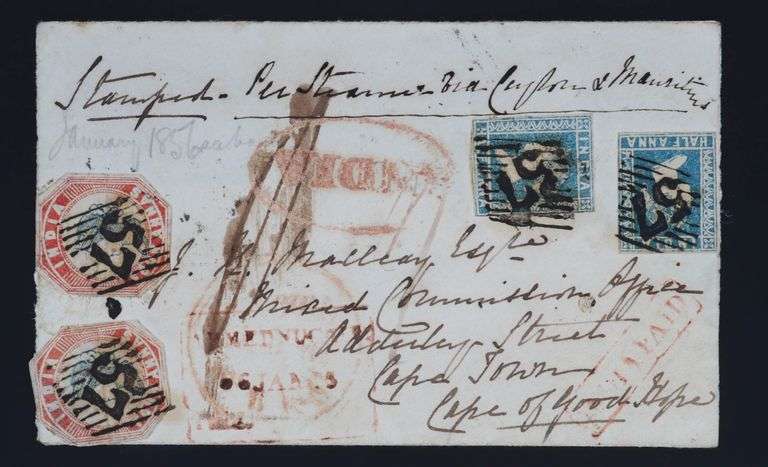 Stamped - Per Steamer via Ceylon & Mauritius
January 1856
INDIA
HALF ANNA
INDIA
ANNAS
57
57
57
INDIA
57
J. Macleay Esqre
Mixed Commission Office
Adderley Street
Cape Town
Cape of Good Hope
PAID